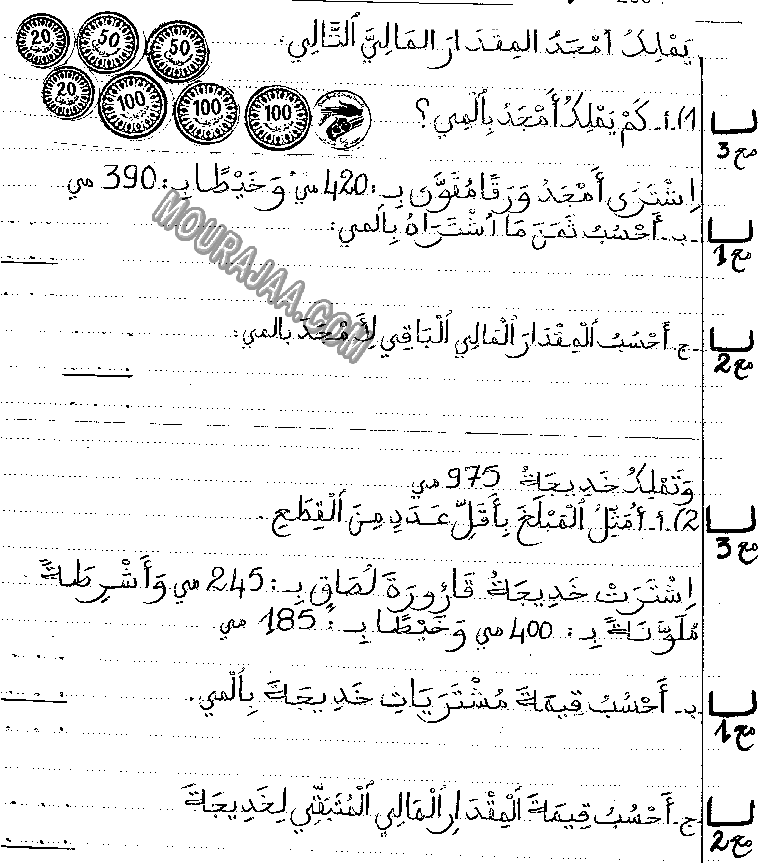 20 50 50
يَمْلِكُ أَمْجَدُ المِقْدَارَ المَالِيَّ التَّالِي:
20 100 100 100
1).أ- كَمْ يَمْلِكُ أَمْجَدُ بِٱلْمِي؟
مع 3
اِشْتَرَى أَمْجَدُ وَرَقًا مُقَوَّى بِـ: 420 مي وَ خَيْطًا بِـ: 390 مي
ب- أَحْسُبُ ثَمَنَ مَا ٱشْتَرَاهُ بِالمي:
مع 1
MOURAJAA.COM
ج- أَحْسُبُ ٱلْمِقْدَارَ ٱلْمَالِي ٱلْبَاقِي لِأَمْجَدَ بالمي:
مع 2
وَتَمْلِكُ خَدِيجَةُ 975 مي
2).أ- أُمَثِّلُ ٱلْمَبْلَغَ بِأَقَلِّ عَدَدٍ مِنَ ٱلْقِطَعِ.
مع 3
اِشْتَرَتْ خَدِيجَةُ قَارُورَةَ لُصَاقٍ بِـ: 245 مي وَأَشْرِطَةً
مُلَوَّنَةً بِـ: 400 مي وَ خَيْطًا بِـ: 185 مي
ب- أَحْسُبُ قِيمَةَ مُشْتَرَيَاتِ خَدِيجَةَ بِٱلْمي.
مع 1
ج- أَحْسُبُ قِيمَةَ ٱلْمِقْدَارِ ٱلْمَالِي ٱلْمُتَبَقِّي لِخَدِيجَةَ
مع 2